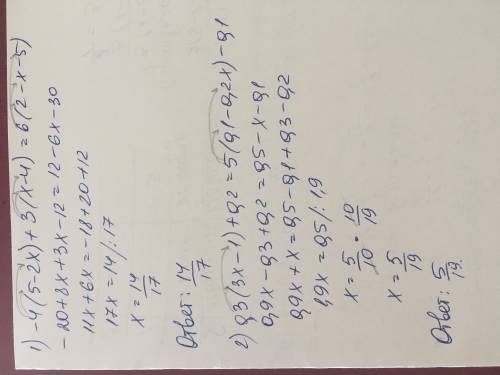 1) -4(5-2x)+3(x-4)=6(2-x-5)
-20+8x+3x-12=12-6x-30
11x+6x=-18+20+12
17x=14/:17
x=14/17
Ответ: 14/17
2) 0,3(3x-1)+0,2=5(0,1-0,2x)-0,1
0,9x-0,3+0,2=0,5-x-0,1
0,9x+x=0,5-0,1+0,3-0,2
1,9x=0,5/:1,9
x=5/10·10/19
x=5/19
Ответ: 5/19.